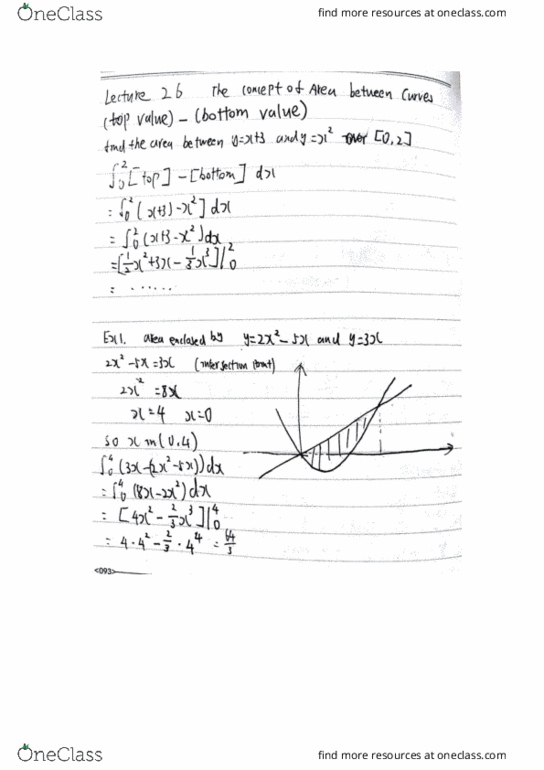 OneClass
find more resources at oneclass.com
Lecture 26 The concept of Area between Curves
(top value) - (bottom value)
find the area between y=x+3 and y=x² over [0,2]
∫₀² [top] - [bottom] dx
= ∫₀² (x+3)-x²] dx
= ∫₀² (x+3-x²)dx
=[½x²+3x-⅓x³]|₀²
= ......
Ex1. area enclosed by y=2x²-5x and y=3x
2x²-5x=3x (intersection point)
2x²=8x
x=4 x=0
so x in(0,4)
∫₀⁴(3x-(2x²-5x))dx
=∫₀⁴(8x-2x²)dx
= [4x²-⅔x³]|₀⁴
= 4·4²-⅔·4⁴ = 64/3
<093>
OneClass
find more resources at oneclass.com